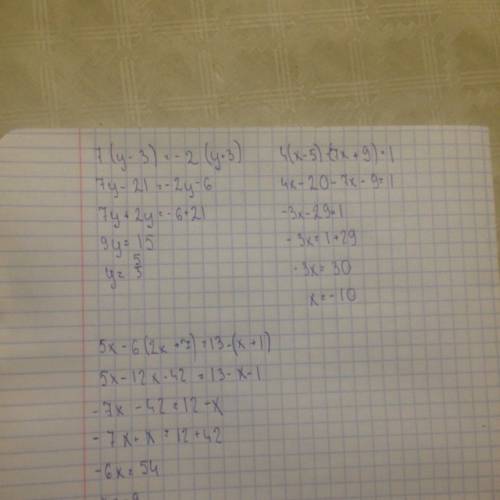 7(y-3)=-2(y+3)
7y-21=-2y-6
7y+2y=-6+21
9y=15
y=5/3
4(x-5)-(7x+9)=1
4x-20-7x-9=1
-3x-29=1
-3x=1+29
-3x=30
x=-10
5x-6(2x+7)=13-(x+1)
5x-12x-42=13-x-1
-7x-42=12-x
-7x+x=12+42
-6x=54